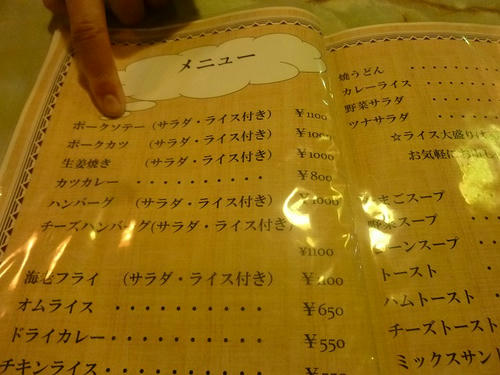 メニュー
ポークソテー (サラダ・ライス付き) ¥1100
ポークカツ (サラダ・ライス付き) ¥1000
生姜焼き (サラダ・ライス付き) ¥1000
カツカレー ・・・・・・・・・・ ¥800
ハンバーグ (サラダ・ライス付き) ¥1000
チーズハンバーグ(サラダ・ライス付き)
¥1100
海老フライ (サラダ・ライス付き) ¥1100
オムライス ・・・・・・・・・・ ¥650
ドライカレー・・・・・・・・・・ ¥550
チキンライス・・・・・・・・・・
焼うどん ・・・・・・
カレーライス ・・・・・
野菜サラダ ・・・・・
ツナサラダ ・・・・・
☆ライス大盛りは
お気軽に
たまごスープ
野菜スープ
コーンスープ ・・
トースト ・
ハムトースト
チーズトースト
ミックスサン